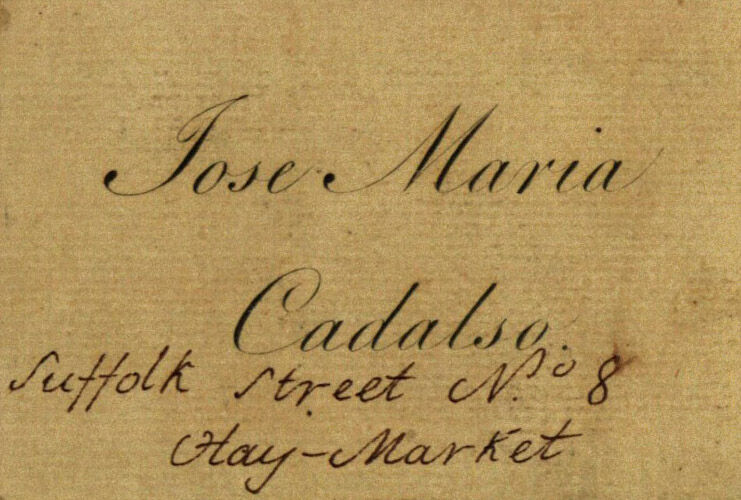 Jose Maria
Cadalso.
Suffolk Street N.º 8
Hay-Market